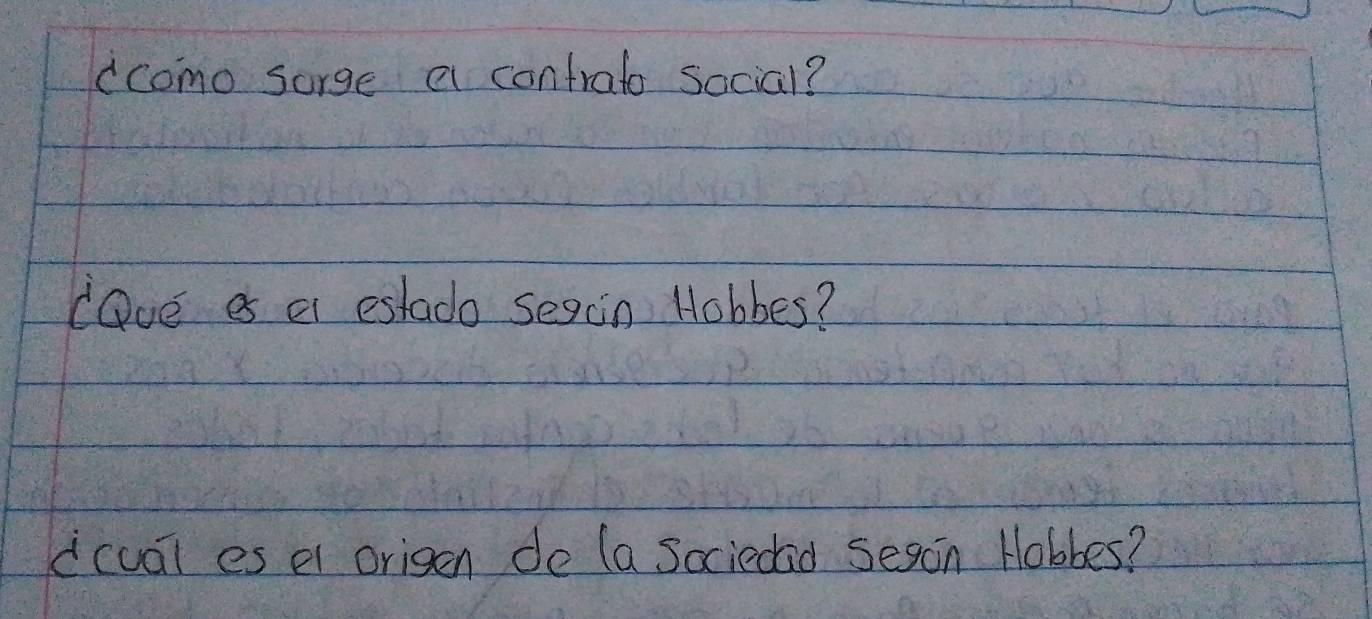 ¿como surge el contrato social?
¿Qué es el estado según Hobbes?
¿cuál es el origen de la sociedad según Hobbes?